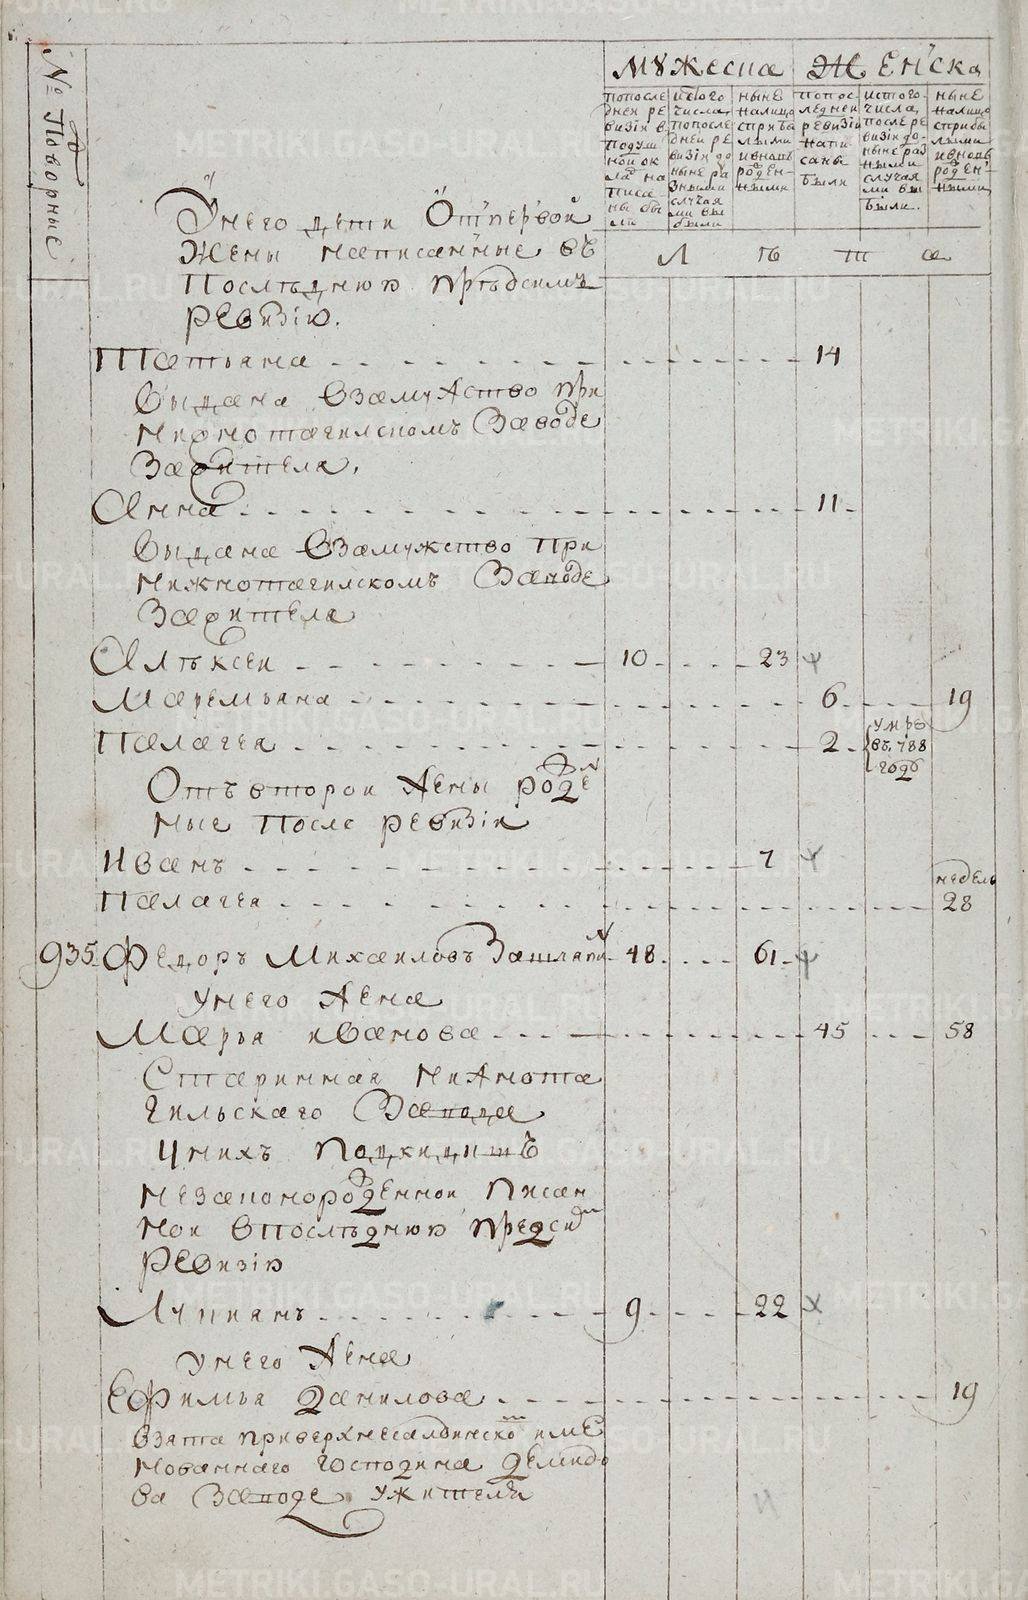 № Подворные
Мꙋжеска
Женска
попосле
дней ре
визiи в
подуш
ной ок
лад на
писа
ны бы
ли
исого
числа
попосле
дней ре
визiи до
ныне ра
зными
случая
ми вы
были
ныне
налицо
сприбы
лыми
ивновь
рожден-
ными
попос
ледней
ревизiи
напи
саны
были
истого
числа
после ре
визiи до-
ныне раз
ными
случая
ми вы
были.
ныне
налицо
сприбы
лыми
ивновь
рожден
ными
Л ѣ т а
Унего дети Отпервой
Жены написанные въ
Послѣднюю прѣдсимъ
ревизiю.
Татьяна 14
Выдана Взамужство при
Нижнотагилскомъ Заводе
Зажителя.
Анна 11
Выдана Взамужство при
Нижнотагилскомъ Заводе
Зажителя
Алѣксеи 10 23
Маремьяна 6 19
Палагея 2 умре
въ 788
годе
Отъ второй жены рожден
ные после ревизiи
Иванъ 7
недель
Палагея 28
935 Федоръ Михаиловъ 48 61
унего жена
Марья иванова 45 58
Старинная Нижнота
гильского Завода
Унихъ подкидышъ
незаконорожденной писан
ной впослѣднюю предсим
ревизiю
Лукиянъ 9 22
унего жена
Ефимья данилова 19
взята приверхнесалдинском име
нованнаго господина демидо
ва Заводе ужителя